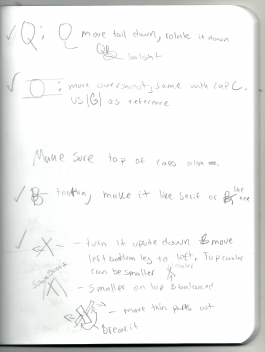 ✓ Q: Q move tail down, rotate it down
QQ height
✓ O: more overshoot, same with cap C.
use |G| as reference
Make sure top of caps align
✓ B too thin, make it like serif or
✓ X - turn it upside down & move
left bottom leg to left. Top counter
can be smaller
- smaller on top & balanced
- move thin parts out
Break it